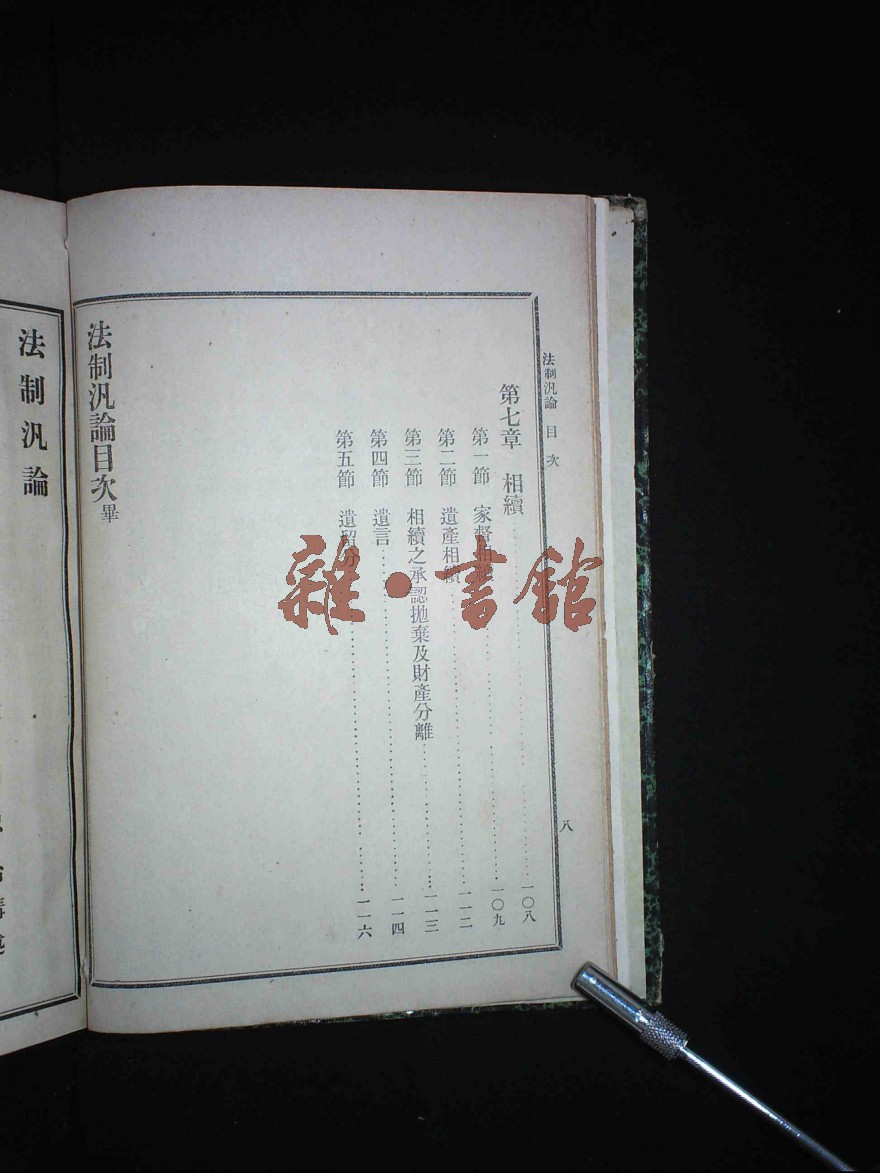 法制汎論 目次 八
第七章 相續……一〇八
第一節 家督相續……一〇九
第二節 遺產相續……一一二
第三節 相續之承認拋棄及財產分離……一一三
第四節 遺言……一一四
第五節 遺留分……一一六
法制汎論目次畢
法制汎論
雜·書館